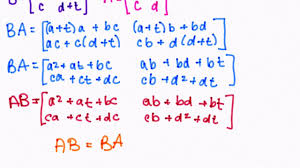 c d+t] c d]
BA = [(a+t)a + bc (a+t)b + bd
ac + c(d+t) cb + d(d+t)]
BA = [a²+at+bc ab + bd + bt
ca + ct + dc cb + d² + dt]
AB = [a² + at + bc ab + bd + bt
ca + ct + dc cb + d² + dt]
AB = BA